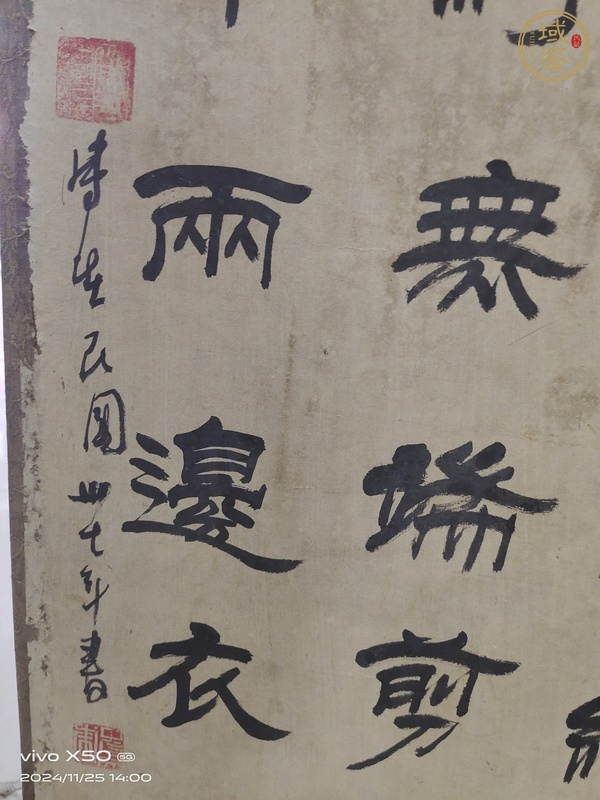 無端剪
兩邊衣
時在民國卅七年書
域
vivo X50 5G
2024/11/25 14:00